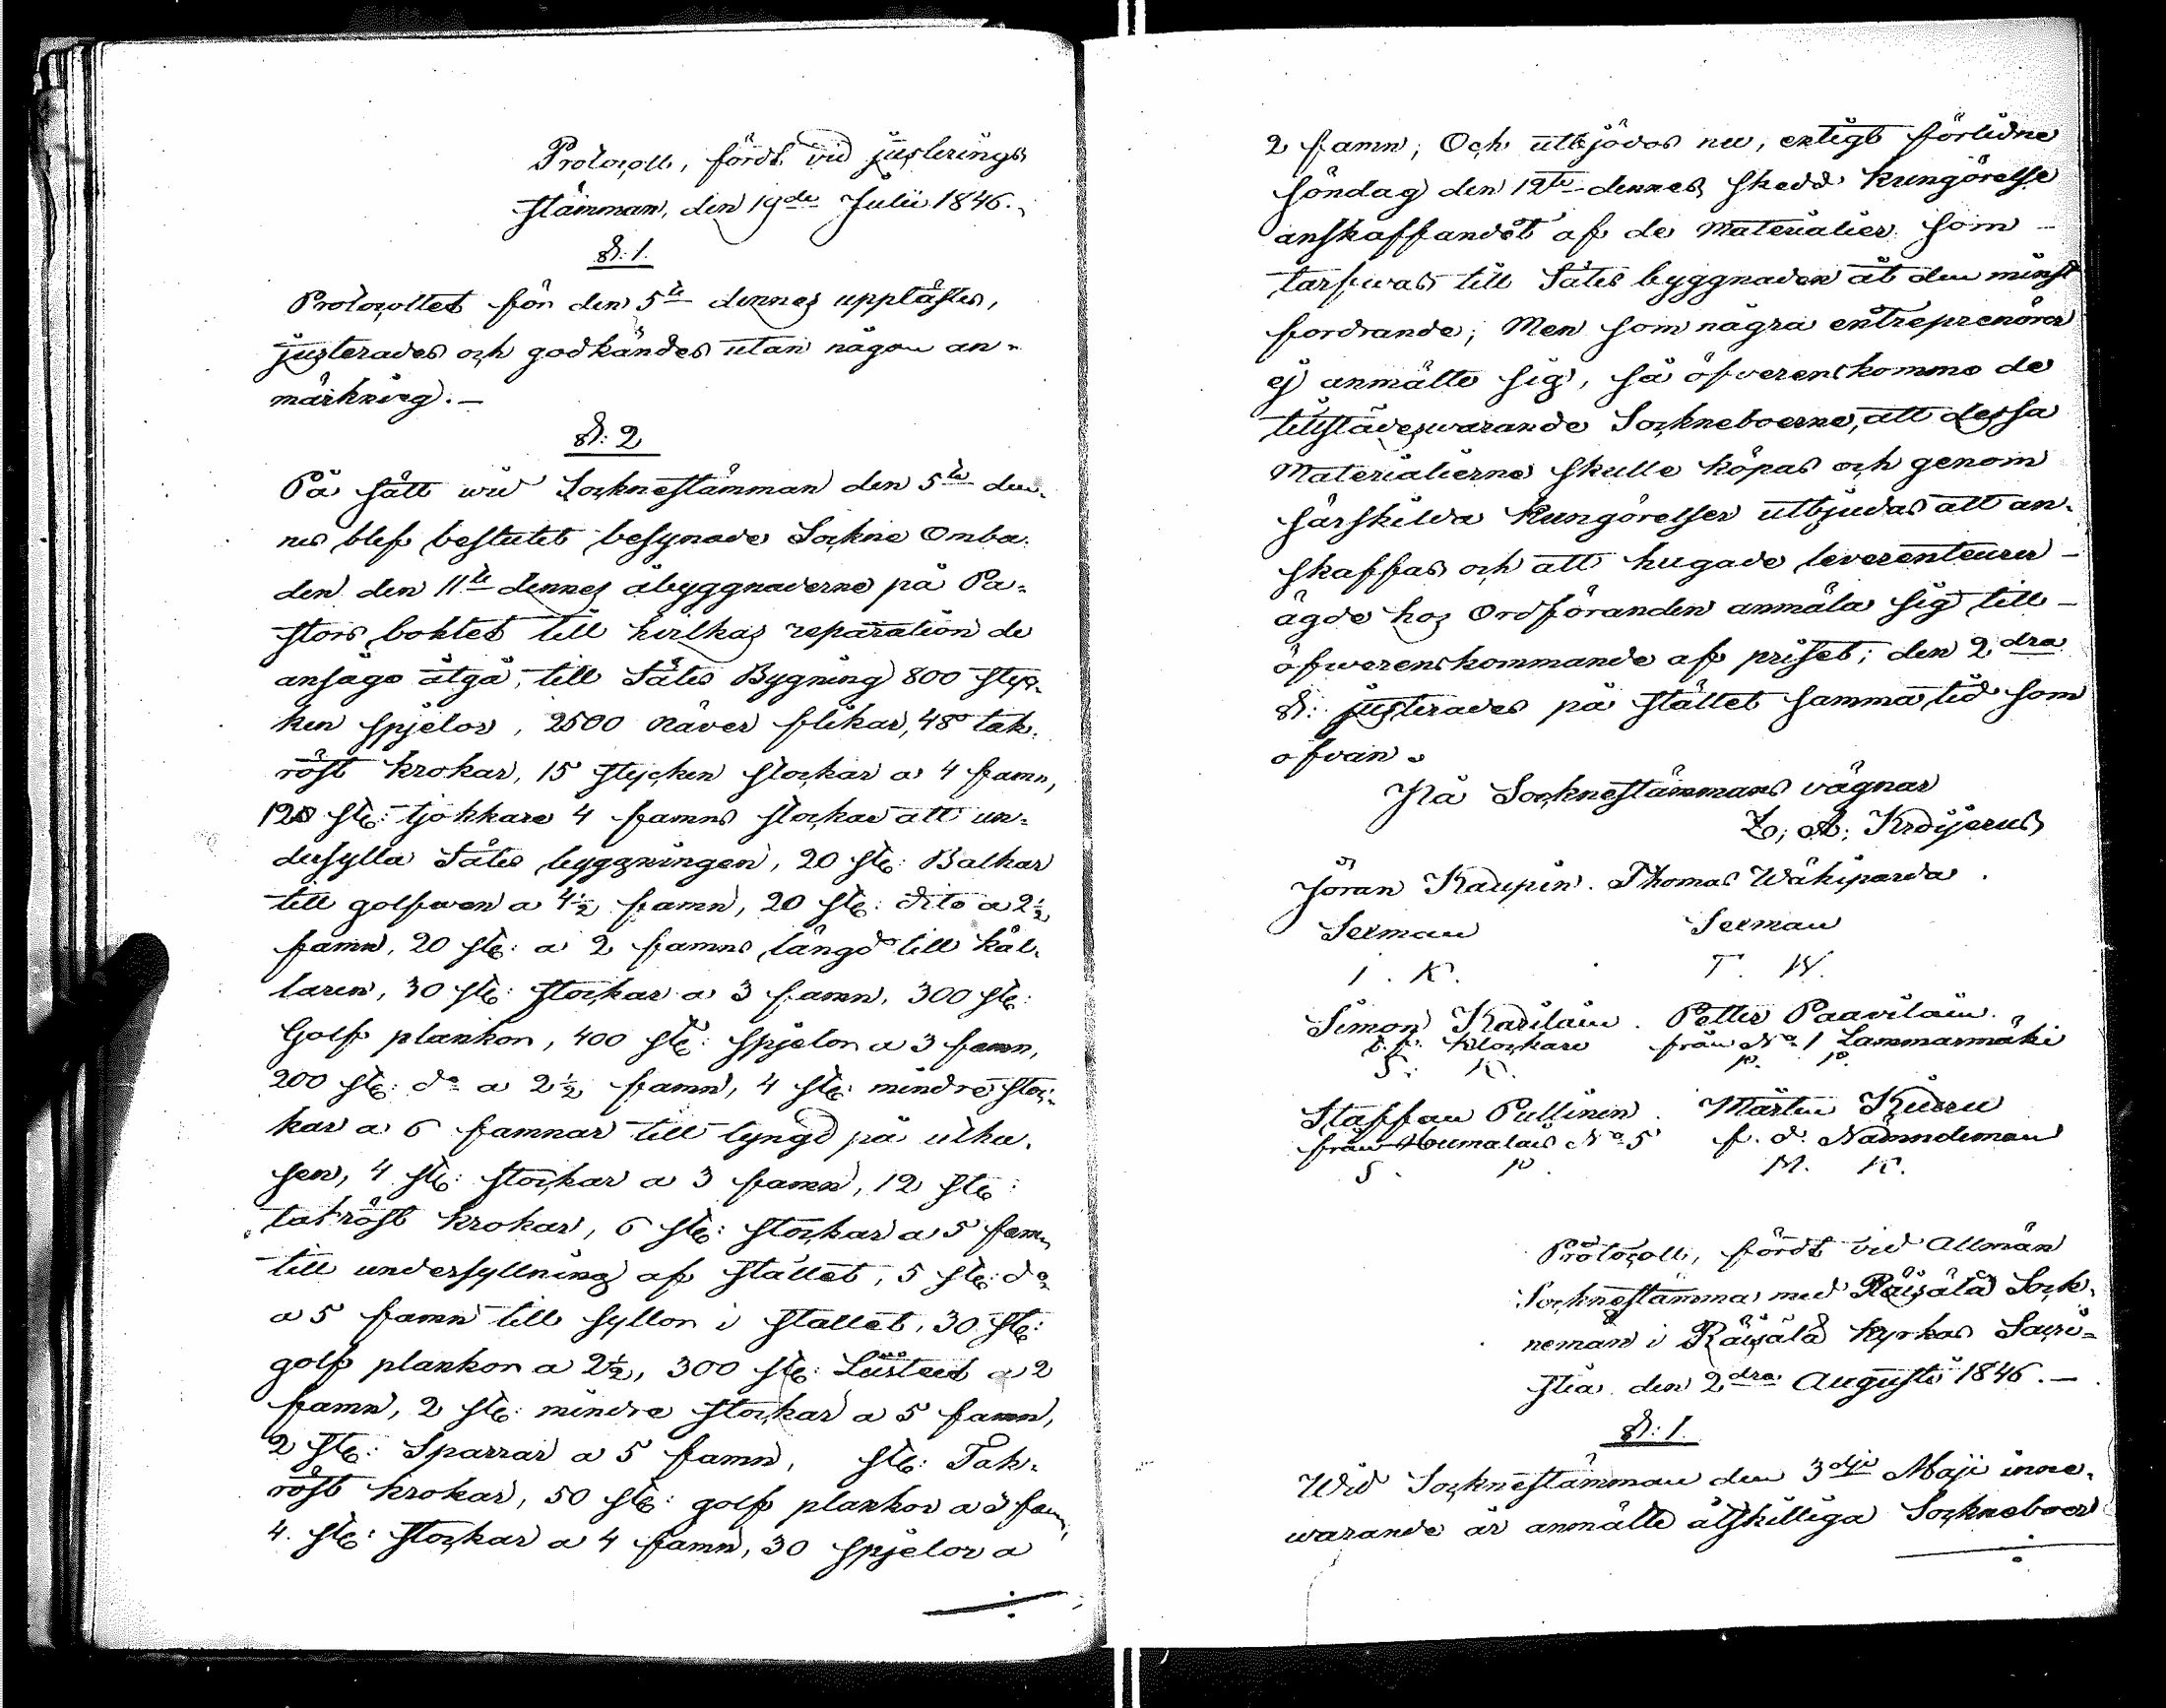 Protocoll, fördt vid justerings
stämman, den 19de Julii 1846.
§: 1.
Protocollet för den 5te dennes upplästes,
justerades och godkändes utan någon an-
märkning. -
§: 2
På sätt wid Socknestämman den 5te den-
nes blef beslutet besynade Sockne Omba-
den den 11te dennes åbyggnaderne på Pa-
stors bohlet till hvilkas reparation de
ansågo åtgå, till Sätes Bygning 800 styc-
ken spjelor, 2500 näver flikar, 48 tak-
röst krokar, 15 stycken stockar a 4 famn,
120 stc: tjokkare 4 famns stockar att un-
dersylla Sätes byggningen, 20 stc: Balkar
till golfwen a 4½ famn, 20 stc: dito a 2½
famn, 20 stc: a 2 famns längd till käl-
laren, 30 stc: stockar a 3 famn, 300 stc:
Golf plankor, 400 stc: spjelor a 3 famn,
200 stc: do a 2½ famn, 4 stc: mindre stoc-
kar a 6 famnar till tyngd på uthu-
sen, 4 stc: stockar a 3 famn, 12 stc:
takröst krokar, 6 stc: stockar a 5 famn
till undersyllning af stallet, 5 stc: do
a 5 famn till syllor i stallet, 30 stc:
golf plankor a 2½, 300 stc: a 2
famn, 2 stc: mindre stockar a 5 famn,
2 stc: Sparrar a 5 famn, stc: Tak-
röst krokar, 50 stc: golf plankor a 3 famn,
4. stc: stockar a 4 famn, 30 spjelor a
2 famn; Och utbjödos nu, enligt förlidne
söndag den 12te dennes skedd kungörelse
anskaffandet af de Materialier som
tarfwas till Sätes byggnaden åt den minst
fordrande; Men som några entreprenörer
ej anmälte sig, så öfverenskommo de
tillstädeswarande Sockneboerne, att dessa
Materialierne skulle köpas och genom
särskilda Kungörelser utbjudas att an-
skaffas och att hugade leverenteurer
ägde hos Ordföranden anmäla sig till
öfwerenskommande af priset; den 2dra
§: justerades på stället samma tid som
ofvan.
På Socknestämmans vägnar
Z. A. Kröijerus
Jöran Kaupin. Thomas Wäkiparda.
Sexman Sexman
I. K. T. W.
Simon Karilain. Petter Paavilain.
t.f. Klockare från No 1 Lammasmäki
S. K. P. P.
Staffan Pullinen. Mårten Kiuru
från Humalais No 5 f. d. Nämndeman
S. P. M. K.
Protocoll, fördt vid Allmän
Socknestämma med Räisälä Sock-
neman i Räisälä kyrkas Sacri-
stia den 2dra Augusti 1846. -
§: 1.
Wid Socknestämman den 3dje Maji inne-
warande år anmälte åtskilliga Sockneboer